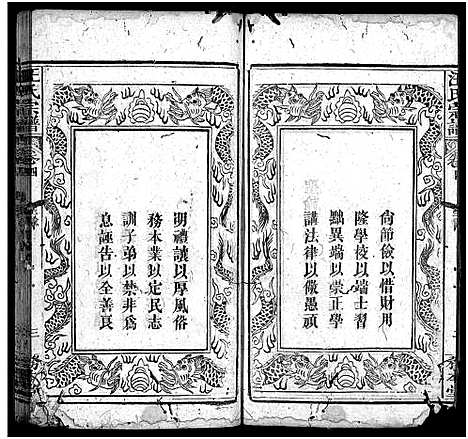 尙節儉以惜財用
隆學校以端士習
黜異端以崇正學
講法律以儆愚頑
明禮議以厚風俗
務本業以定民志
訓子弟以禁非爲
息誣告以全善良
汪氏宗譜
卷四